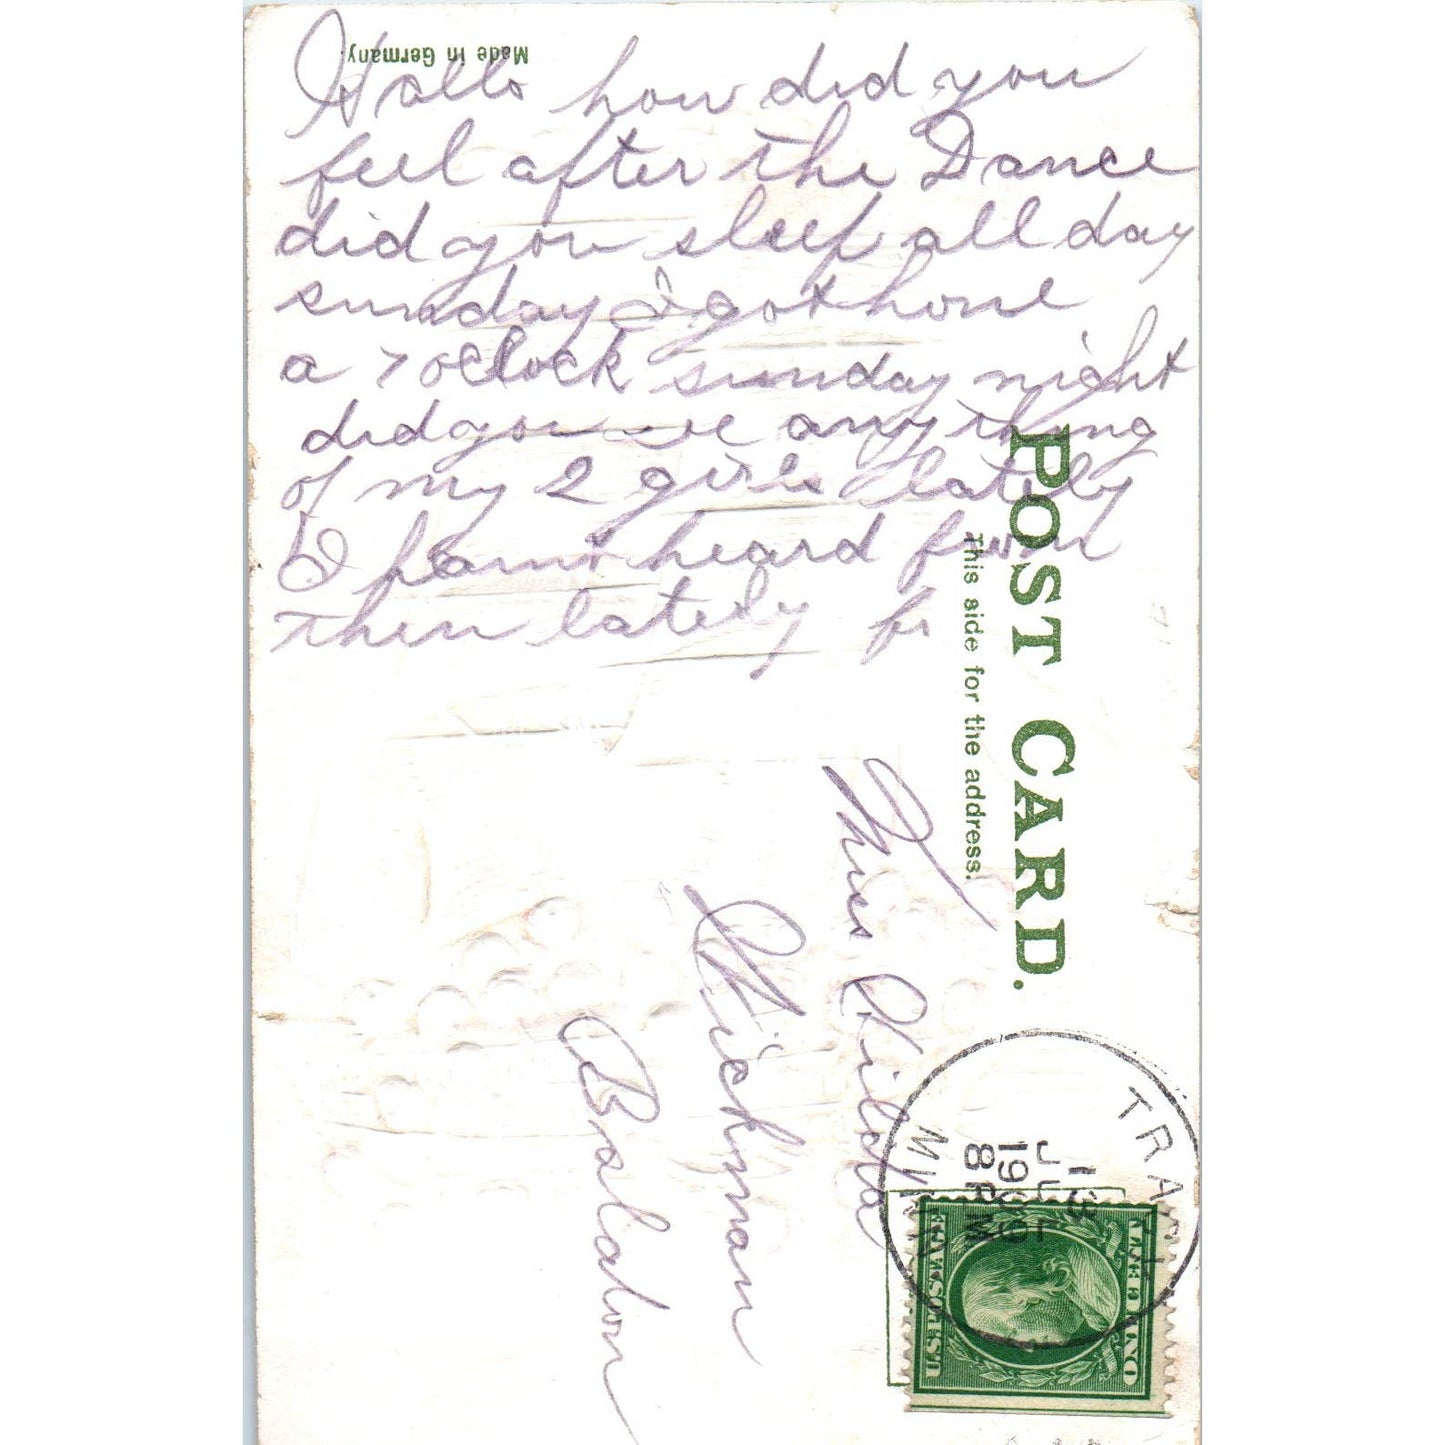 Hallo how did you
feel after the Dance
did you sleep all day
sunday I got home
a 7 oclock sunday night
did you see any thing
of my 2 girls lately
I haint heard from
then lately
Made in Germany.
POST CARD.
This side for the address.
Miss Hilda
Hickman
Balaton
TRACY
MINN
13
JUL
1909
8 PM
U.S. POSTAGE
ONE CENT